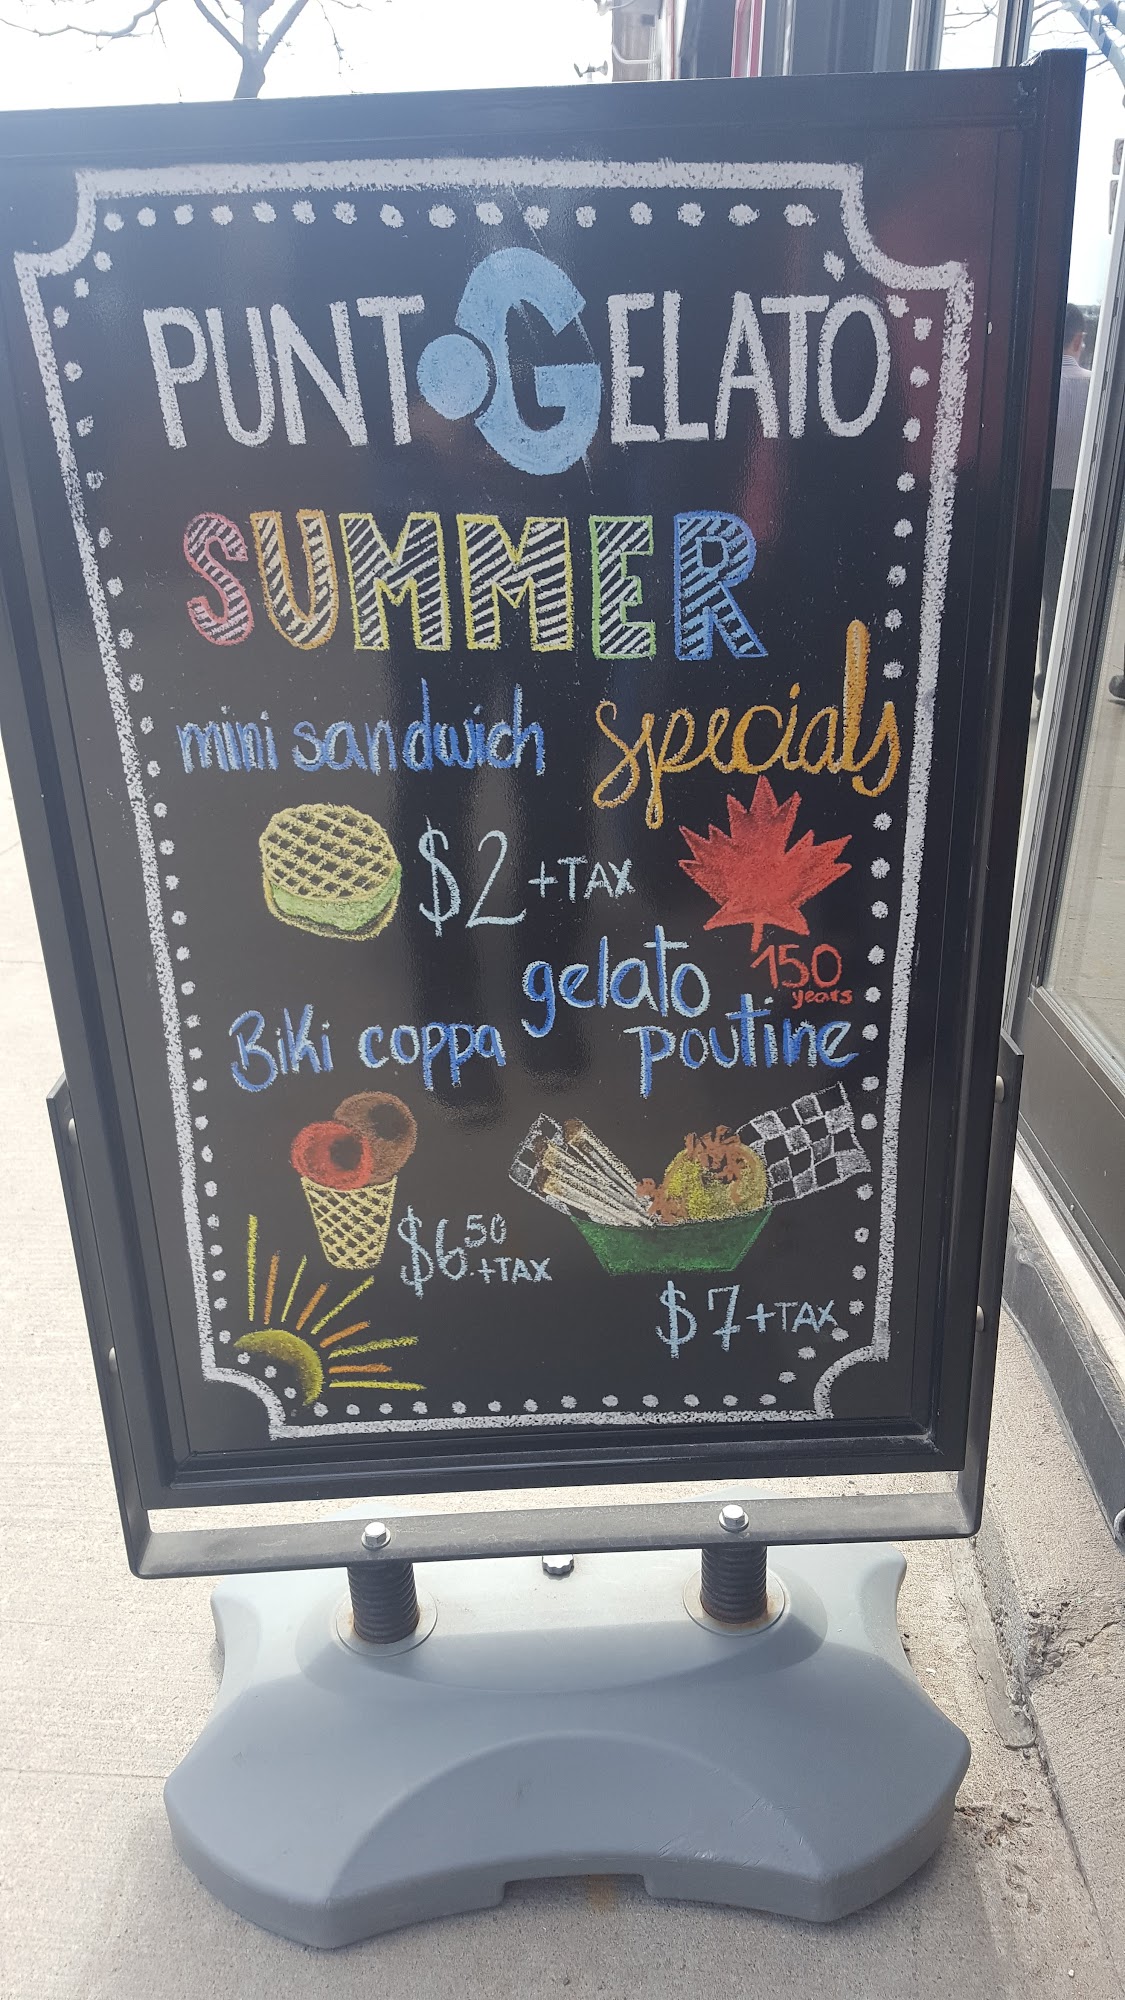 PUNTOGELATO
SUMMER
specials
mini sandwich
$2 +TAX
150
years
gelato
poutine
$7 +TAX
Biki coppa
$6.50
+TAX